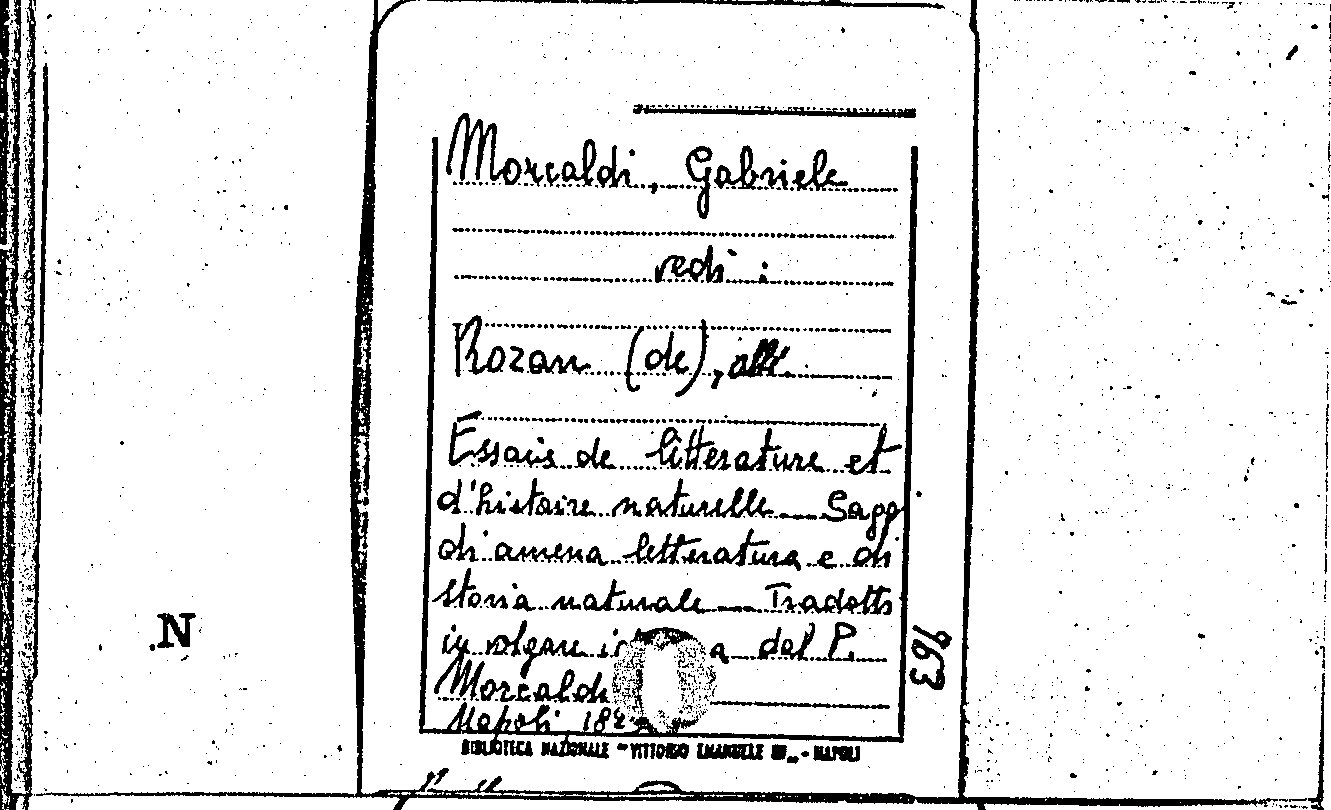 Morcaldi, Gabriele
vedi :
Rozan (de), abbé.
Essais de litterature et
d'histoire naturelle — Sagg
di amena letteratura e di
storia naturale — Tradotti
in volgare del P.
Morcaldi
Napoli, 18
963
N
BIBLIOTECA NAZIONALE "VITTORIO EMANUELE III" - NAPOLI